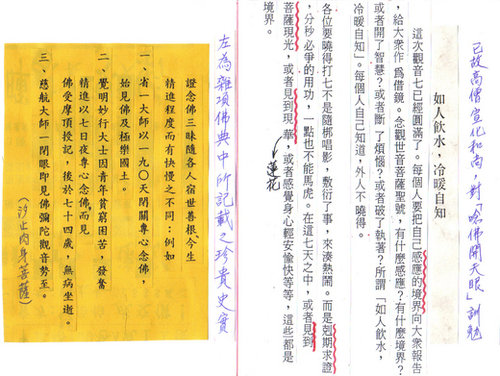 已故高僧宣化和尚,對「唸佛開天眼」訓勉
如人飲水,冷暖自知
這次觀音七已經圓滿了。每個人要把自己感應的境界向大眾報告
,給大眾作為借鏡。念觀世音菩薩聖號,有什麼感應?有什麼境界?
或者開了智慧?或者斷了煩惱?或者破了執著?所謂「如人飲水,
冷暖自知」。每個人自己知道,外人不曉得。
各位要曉得打七不是隨梆唱影,敷衍了事,來湊熱鬧。而是剋期求證
,分秒必爭的用功,一點也不能馬虎。在這七天之中,或者見到
菩薩現光,或者見到現華,或者感覺身心輕安愉快等等,這些都是
蓮花
境界。
左為雜項佛典中所記載之珍貴史實
證念佛三昧隨各人宿世善根、今生
精進程度而有快慢之不同:例如
一、省一大師以一九○天閉關專心念佛,
始見佛及極樂國土。
二、覺明妙行大士因青年貧窮困苦,發奮
精進以七日夜專心念佛,而見
佛受摩頂授記,後於七十四歲,無病坐逝。
三、慈航大師一閉眼即見佛彌陀觀音勢至。
(汐止肉身菩薩)